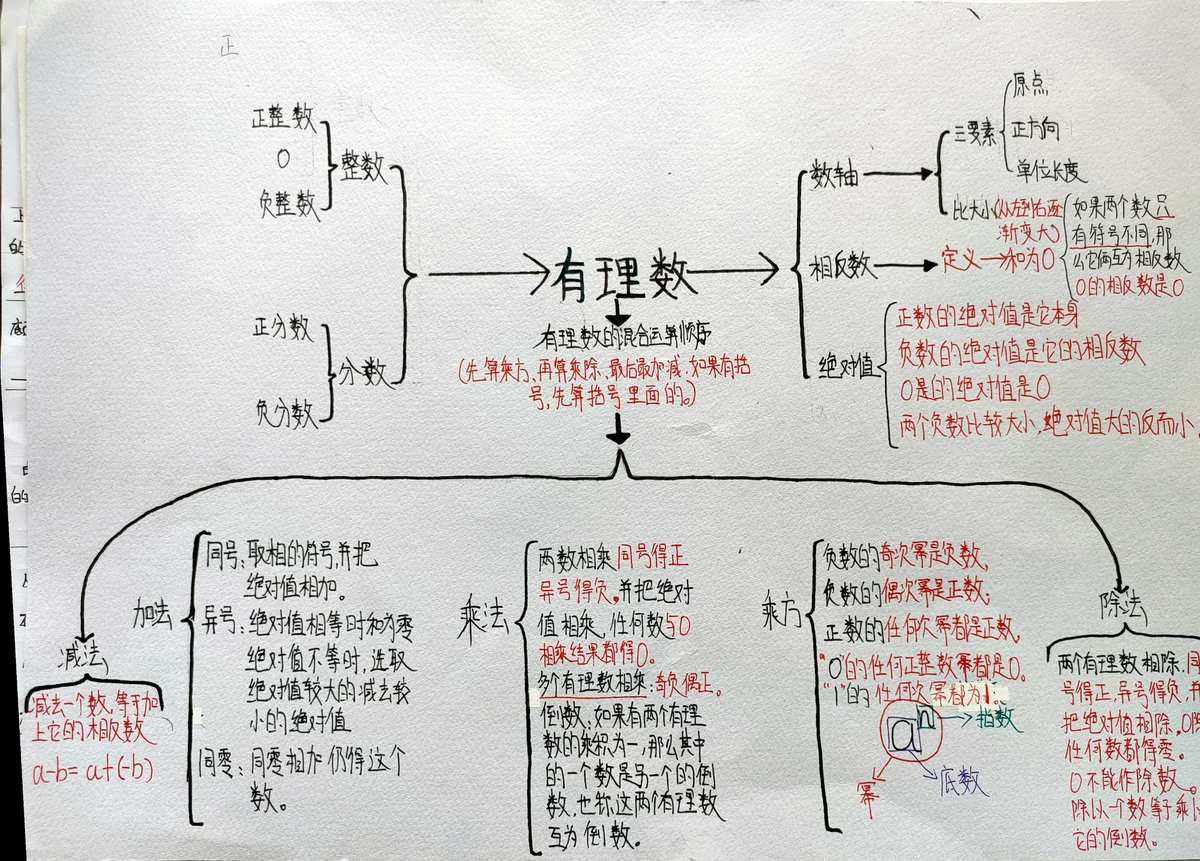 正
正整数
0
负整数
整数
正分数
负分数
分数
有理数
有理数的混合运算顺序
(先算乘方、再算乘除、最后最加减.如果有括
号,先算括号里面的。)
数轴
三要素
原点
正方向
单位长度
比大小(从左到右逐
渐变大)
相反数
定义→和为0
如果两个数只
有符号不同,那
么它俩互为相反数
0的相反数是0
绝对值
正数的绝对值是它本身
负数的绝对值是它的相反数
0是的绝对值是0
两个负数比较大小,绝对值大的反而小.
减法
减去一个数,等于加
上它的相反数
a-b=a+(-b)
加法
同号:取相的符号,并把
绝对值相加。
异号:绝对值相等时和为零
绝对值不等时,选取
绝对值较大的减去较
小的绝对值
同零:同零相加仍得这个
数。
乘法
两数相乘同号得正
异号得负。并把绝对
值相乘,任何数与0
相乘结果都得0。
多个有理数相乘:奇负偶正。
倒数:如果有两个有理
数的乘积为一,那么其中
的一个数是另一个的倒
数,也称这两个有理数
互为倒数。
乘方
负数的奇次幂是负数,
负数的偶次幂是正数;
正数的任何次幂都是正数,
"0"的任何正整数幂都是0。
"1"的任何次幂都为1。
an
指数
底数
幂
除法
两个有理数相除,同
号得正,异号得负,并
把绝对值相除。0除
任何数都得零。
0不能作除数。
除以一个数等于乘以
它的倒数。